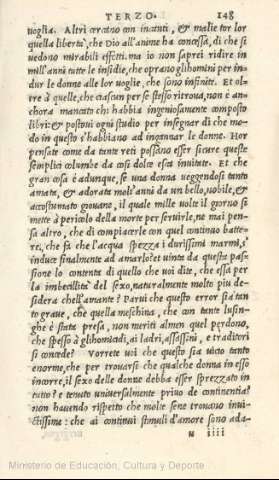 TERZO. 148
uoglia. Altri cercano con incanti, & malie tor lor
quella libertà, che Dio all'anime ha concessa, di che si
uedono mirabili effetti. ma io non saprei ridire in
mill'anni tutte le insidie, che oprano gli homini per in
dur le donne alle lor uoglie, che sono infinite. Et ol-
tre à quelle, che ciascun per se stesso ritroua, non è an-
chora mancato chi habbia ingeniosamente composto
libri: & postoui ogni studio per insegnar di che mo-
do in questo s'habbiano ad ingannar le donne. Hor
pensate come da tante reti possano esser sicure queste
semplici columbe da cosi dolce esca inuitate. Et che
gran cosa è adunque, se una donna ueggendosi tanto
amata, & adorata molt'anni da un bello, nobile, &
accostumato giouane, il quale mille uolte il giorno si
mette à pericolo della morte per seruirle, ne mai pen-
sa altro, che di compiacerle con quel continuo batte-
re; che fa che l'acqua spezza i durissimi marmi, s'
induce finalmente ad amarlo? et uinta da questa pas-
sione lo contenta di quello che uoi dite, che essa per
la imbecillità del sexo, naturalmente molto piu de-
sidera che l'amante? Parui che questo error sia tan
to graue, che quella meschina, che con tante lusin-
ghe è stata presa, non meriti almen quel perdono,
che spesso à gli homicidi, ai ladri, assassini, e traditori
si concede? Vorrete uoi che questo sia uicio tanto
enorme, che per trouarsi che qualche donna in esso
incorre, il sexo delle donne debba esser sprezzato in
tutto? e tenuto uniuersalmente priuo de continentia?
non hauendo rispetto che molte sene trouano inui-
ctissime: che ai continui stimuli d'amore sono ada-
M iiii
Ministerio de Educación, Cultura y Deporte